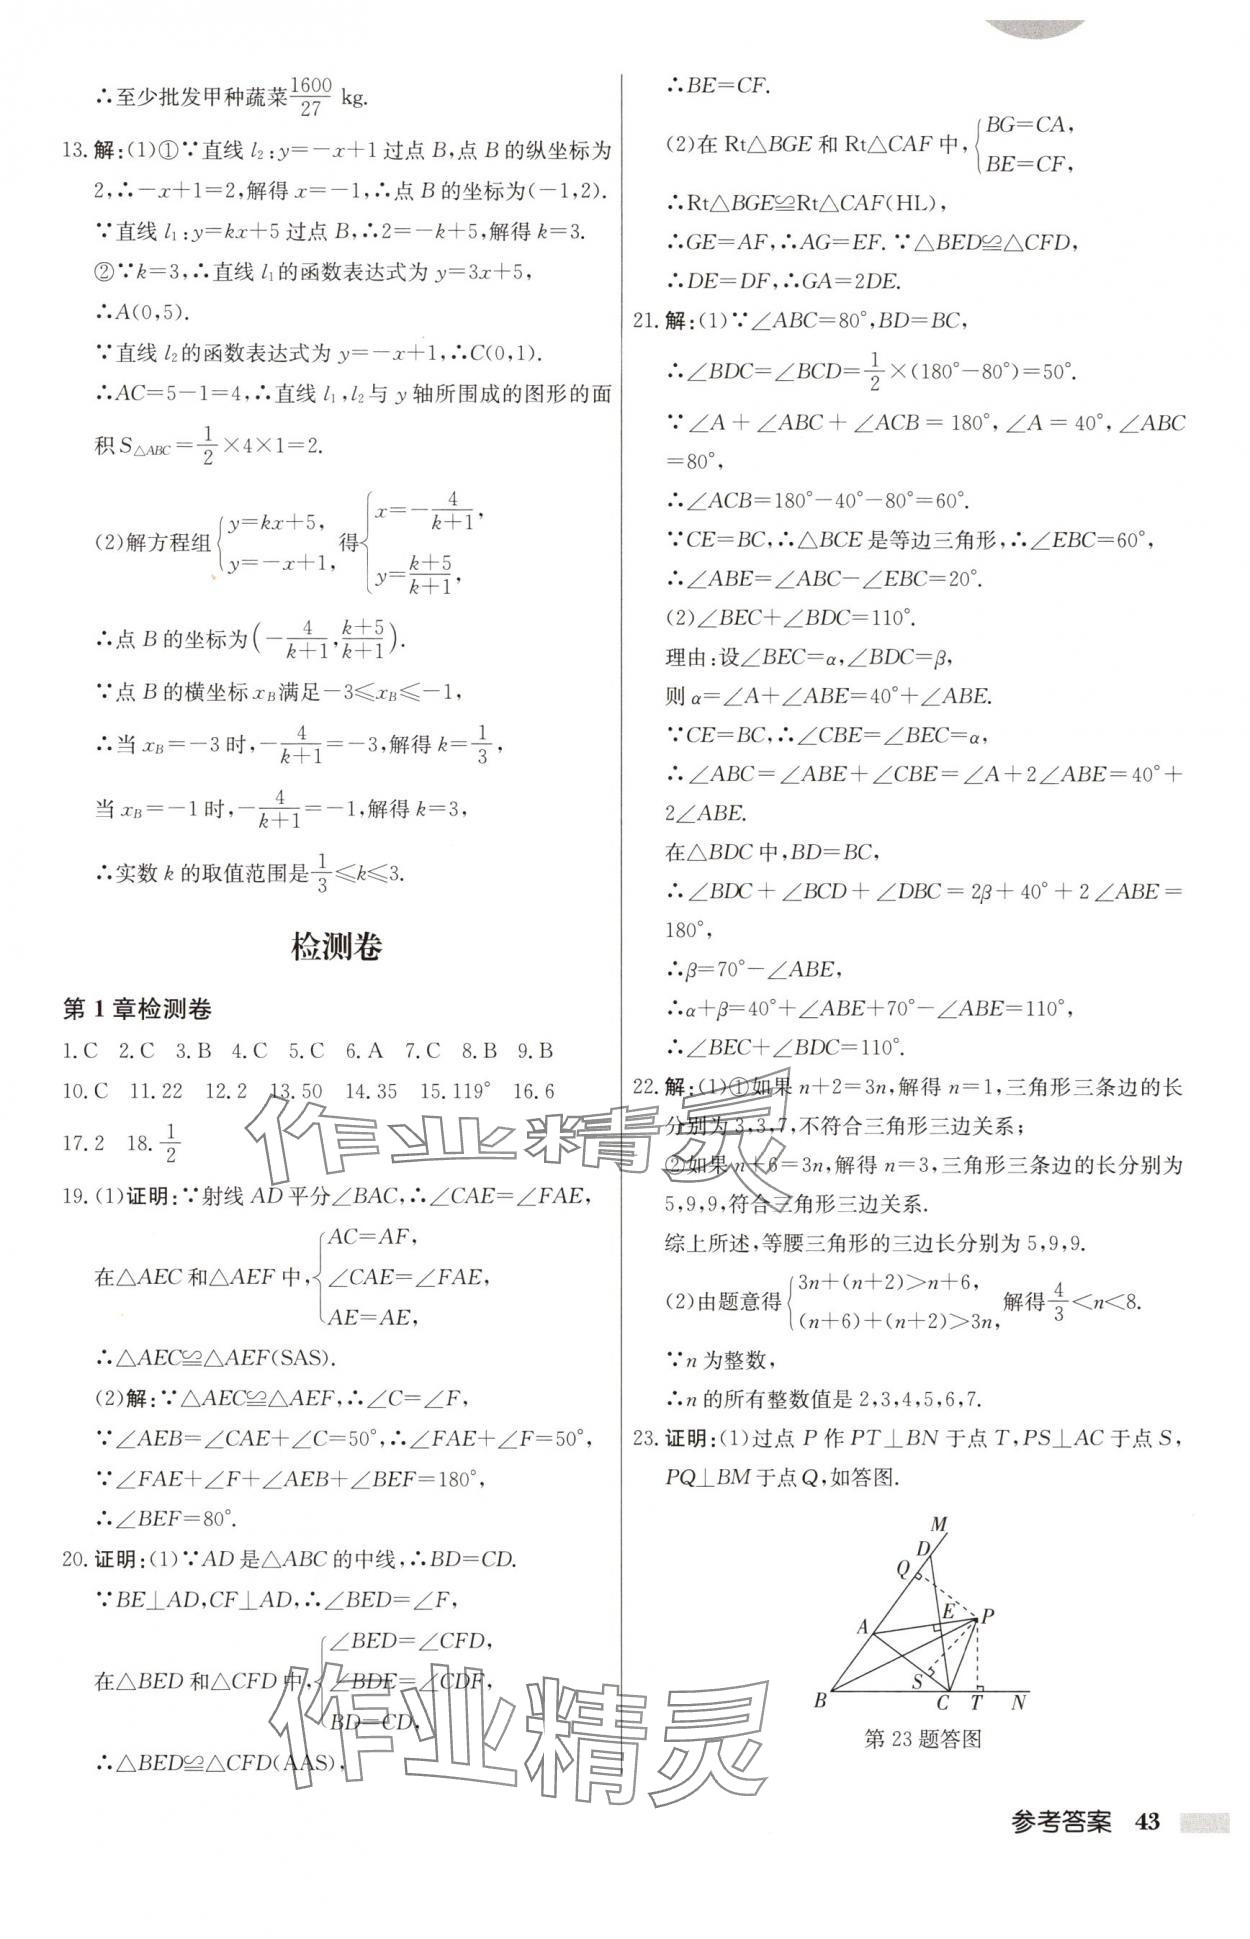 ∴至少批发甲种蔬菜1600/27 kg.
13. 解:(1)①∵直线 l₂:y=-x+1过点 B,点 B 的纵坐标为
2,∴-x+1=2,解得 x=-1,∴点 B 的坐标为(-1,2).
∵直线 l₁:y=kx+5过点 B,∴2=-k+5,解得 k=3.
②∵k=3,∴直线 l₁的函数表达式为 y=3x+5,
∴A(0,5).
∵直线 l₂的函数表达式为 y=-x+1,∴C(0,1).
∴AC=5-1=4,∴直线 l₁,l₂与 y 轴所围成的图形的面
积 S△ABC=1/2×4×1=2.
(2)解方程组{y=kx+5, y=-x+1, 得{x=-4/(k+1), y=(k+5)/(k+1),
∴点 B 的坐标为(-4/(k+1),(k+5)/(k+1)).
∵点 B 的横坐标 x_B 满足-3≤x_B≤-1,
∴当 x_B=-3时,-4/(k+1)=-3,解得 k=1/3,
当 x_B=-1时,-4/(k+1)=-1,解得 k=3,
∴实数 k 的取值范围是1/3≤k≤3.
检测卷
第 1 章检测卷
1.C 2.C 3.B 4.C 5.C 6.A 7.C 8.B 9.B
10.C 11.22 12.2 13.50 14.35 15.119° 16.6
17.2 18.1/2
19. (1)证明:∵射线 AD 平分∠BAC,∴∠CAE=∠FAE,
在△AEC 和△AEF 中,{AC=AF, ∠CAE=∠FAE, AE=AE,
∴△AEC≌△AEF(SAS).
(2)解:∵△AEC≌△AEF,∴∠C=∠F,
∵∠AEB=∠CAE+∠C=50°,∴∠FAE+∠F=50°,
∵∠FAE+∠F+∠AEB+∠BEF=180°,
∴∠BEF=80°.
20. 证明:(1)∵AD 是△ABC 的中线,∴BD=CD.
∵BE⊥AD,CF⊥AD,∴∠BED=∠F,
在△BED 和△CFD 中,{∠BED=∠CFD, ∠BDE=∠CDF, BD=CD,
∴△BED≌△CFD(AAS),
∴BE=CF.
(2)在 Rt△BGE 和 Rt△CAF 中,{BG=CA, BE=CF,
∴Rt△BGE≌Rt△CAF(HL),
∴GE=AF,∴AG=EF. ∵△BED≌△CFD,
∴DE=DF,∴GA=2DE.
21. 解:(1)∵∠ABC=80°,BD=BC,
∴∠BDC=∠BCD=1/2×(180°-80°)=50°.
∵∠A+∠ABC+∠ACB=180°,∠A=40°,∠ABC
=80°,
∴∠ACB=180°-40°-80°=60°.
∵CE=BC,∴△BCE 是等边三角形,∴∠EBC=60°,
∴∠ABE=∠ABC-∠EBC=20°.
(2)∠BEC+∠BDC=110°.
理由:设∠BEC=α,∠BDC=β,
则 α=∠A+∠ABE=40°+∠ABE.
∵CE=BC,∴∠CBE=∠BEC=α,
∴∠ABC=∠ABE+∠CBE=∠A+2∠ABE=40°+
2∠ABE.
在△BDC 中,BD=BC,
∴∠BDC+∠BCD+∠DBC=2β+40°+2∠ABE=
180°,
∴β=70°-∠ABE,
∴α+β=40°+∠ABE+70°-∠ABE=110°,
∴∠BEC+∠BDC=110°.
22. 解:(1)①如果 n+2=3n,解得 n=1,三角形三条边的长
分别为3,3,7,不符合三角形三边关系;
②如果 n+6=3n,解得 n=3,三角形三条边的长分别为
5,9,9,符合三角形三边关系.
综上所述,等腰三角形的三边长分别为5,9,9.
(2)由题意得{3n+(n+2)>n+6, (n+6)+(n+2)>3n, 解得4/3<n<8.
∵n 为整数,
∴n 的所有整数值是2,3,4,5,6,7.
23. 证明:(1)过点 P 作 PT⊥BN 于点 T,PS⊥AC 于点 S,
PQ⊥BM 于点 Q,如答图.
M
D
Q
E
P
A
S
B
C
T
N
第 23 题答图
作业精灵
作业精灵
参考答案 43